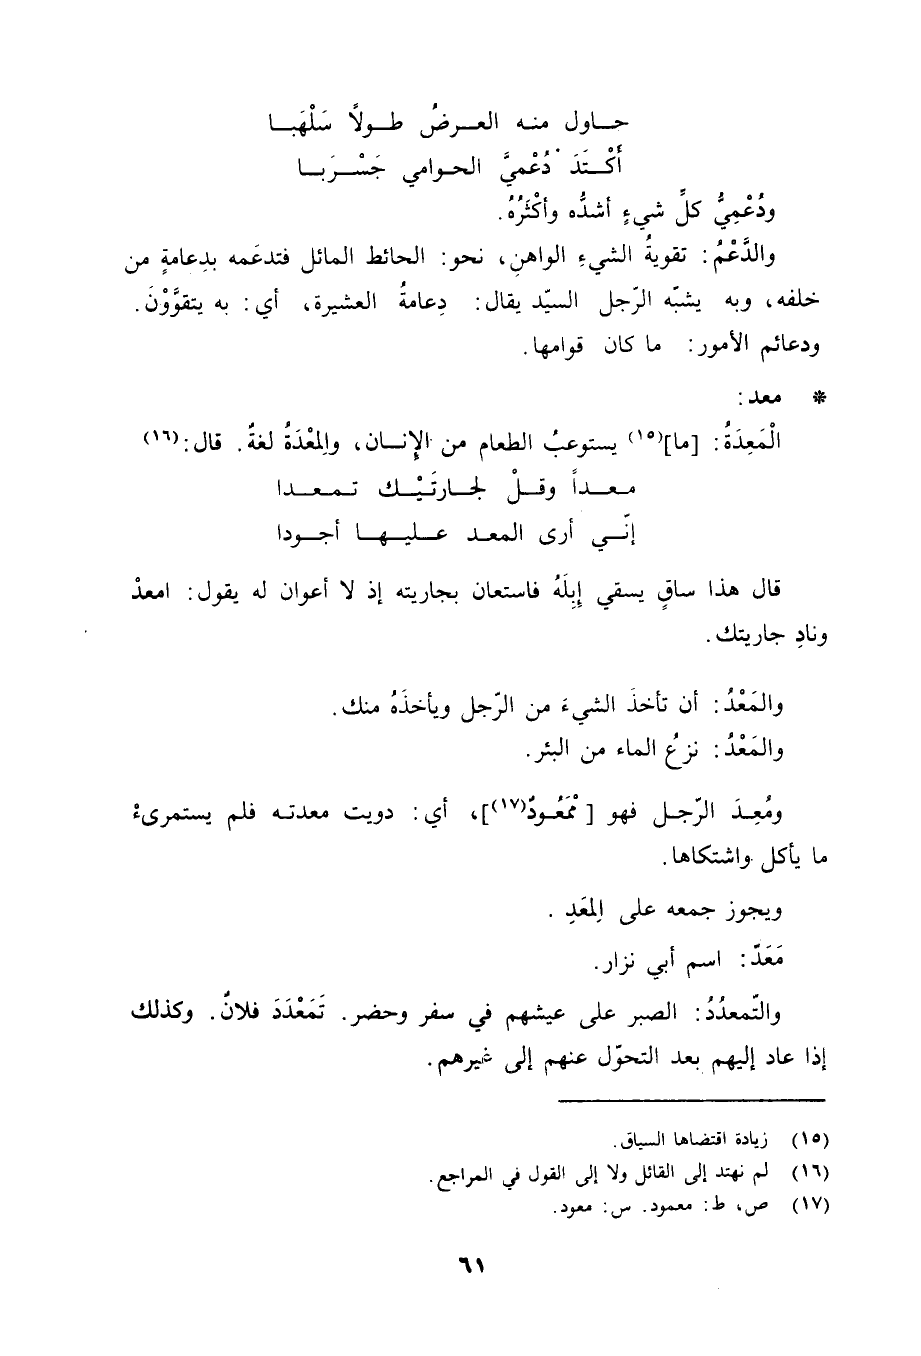 حاول منه العرضُ طولاً سَلْهَبا
أَكْتَدَ دُعْميَّ الحوامي جَسْرَبا
ودُعْمِيُّ كلِّ شيءٍ أشدُّه وأكْثَرُهُ.
والدَّعْمُ: تقويةُ الشيءِ الواهنِ، نحو: الحائط المائل فتدعَمه بدِعامةٍ من
خلفه، وبه يشبّه الرّجل السيّد يقال: دِعامةُ العشيرة، أي: به يتقوَّوْنَ.
ودعائم الأمور: ما كان قوامها.
* معد:
الْمَعِدَةُ: [ما](١٥) يستوعبُ الطعام من الإنسان، والمِعْدَةُ لغةٌ. قال:(١٦)
معداً وقلْ لجارتَيْك تمعدا
إنّي أرى المعد عليها أجودا
قال هذا ساقٍ يسقي إبِلَهُ فاستعان بجاريته إذ لا أعوان له يقول: امعدْ
ونادِ جاريتك.
والمَعْدُ: أن تأخذَ الشيءَ من الرّجل ويأخذَهُ منك.
والمَعْدُ: نزعُ الماء من البئر.
ومُعِدَ الرّجل فهو [مَمْعُودٌ(١٧)]، أي: دويت معدته فلم يستمرىءْ
ما يأكل واشتكاها.
ويجوز جمعه على المِعَدِ.
مَعَدّ: اسم أبي نزار.
والتّمعدُدُ: الصبر على عيشهم في سفر وحضر. تَمَعْدَدَ فلانٌ. وكذلك
إذا عاد إليهم بعد التحوّل عنهم إلى غيرهم.
(١٥) زيادة اقتضاها السياق.
(١٦) لم نهتد إلى القائل ولا إلى القول في المراجع.
(١٧) ص، ط: معمود. س: معود.
٦١